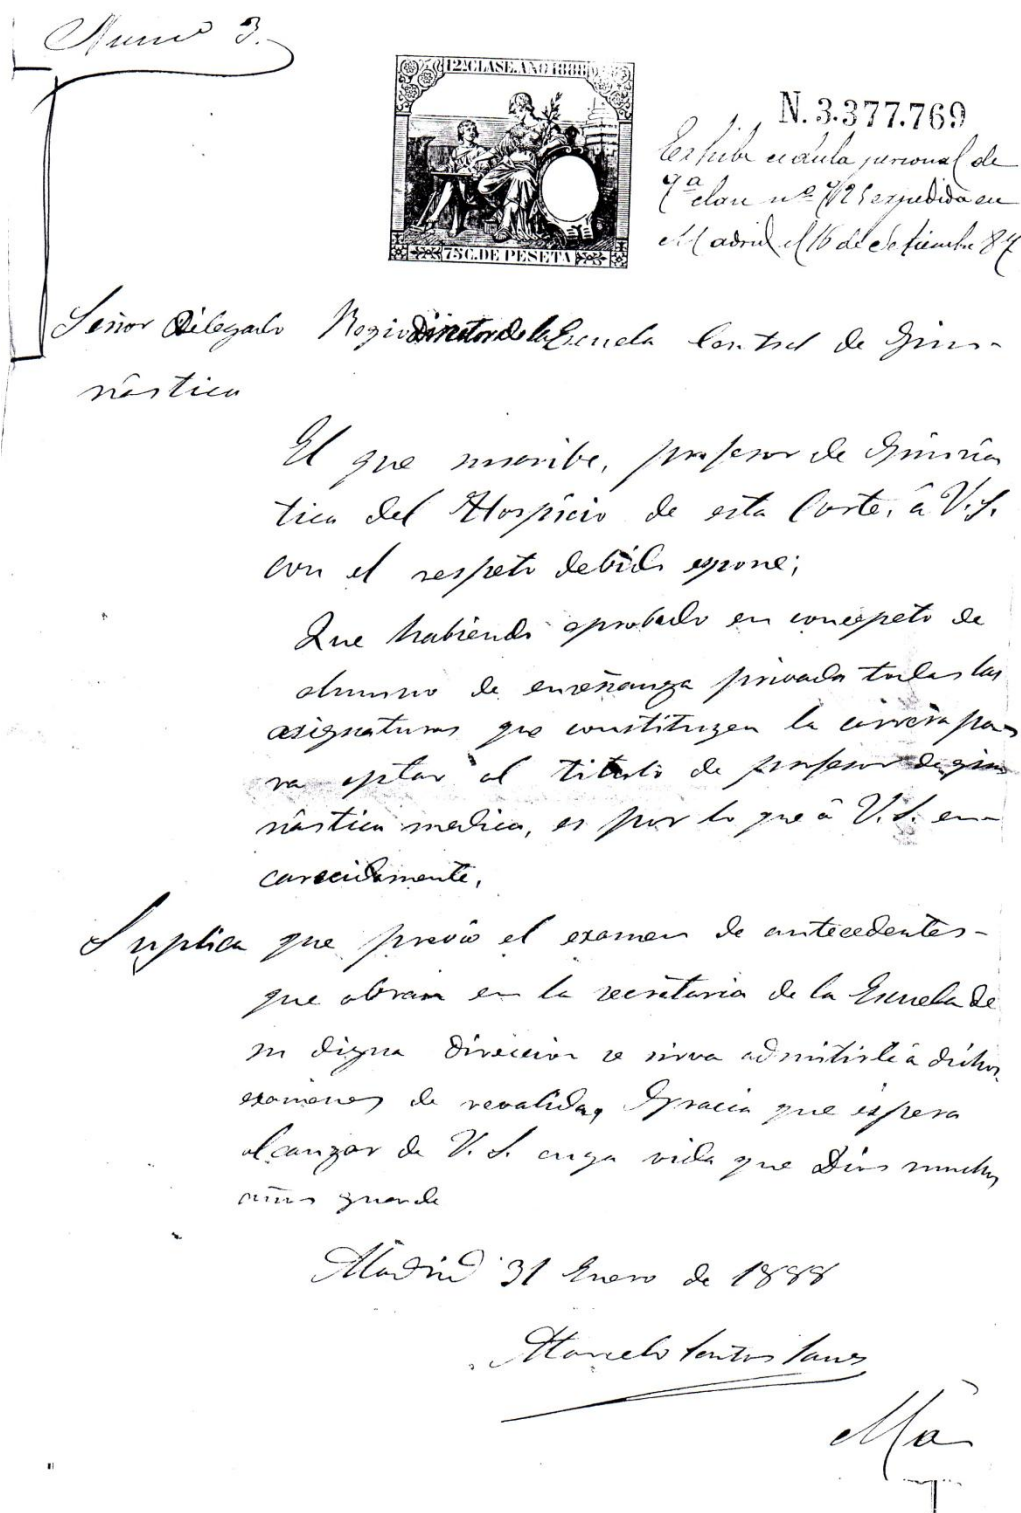 Num.º 3.
12ª CLASE. AÑO 1888
N. 3.377.769
75 C. DE PESETA
Exhibe cédula personal de
9ª clase nº expedida en
Madrid el 16 de Setiembre 87
Señor Delegado Regio director de la Escuela Central de Gim-
nástica
El que suscribe, profesor de Gimnás
tica del Hospicio de esta Corte, á V.S.
con el respeto debido espone;
Que habiendo aprobado en concepto de
alumno de enseñanza privada todas las
asignaturas que constituyen la carrera pa-
ra optar al titulo de profesor de gim
nástica medica, es por lo que á V.S. en-
carecidamente,
Suplica que previo el examen de antecedentes-
que obran en la secretaria de la Escuela de
su digna direccion se sirva admitirle á dichos
examenes de revalida, Gracia que espera
alcanzar de V.S. cuya vida que Dios muchos
años guarde
Madrid 31 Enero de 1888
Marcelo Santos Sanz